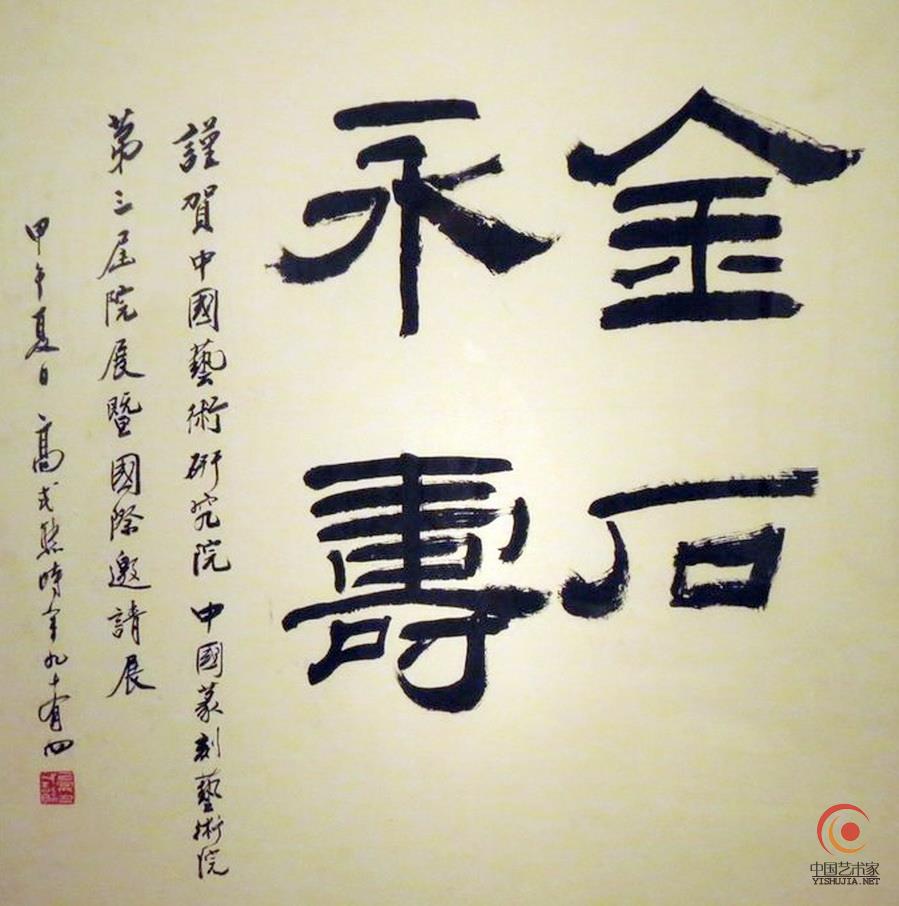 金石
永壽
謹賀中國藝術研究院中國篆刻藝術院
第三屆院展暨國際邀請展
甲午夏日高式熊時年九十有四
中国艺术家
YISHUJIA.NET